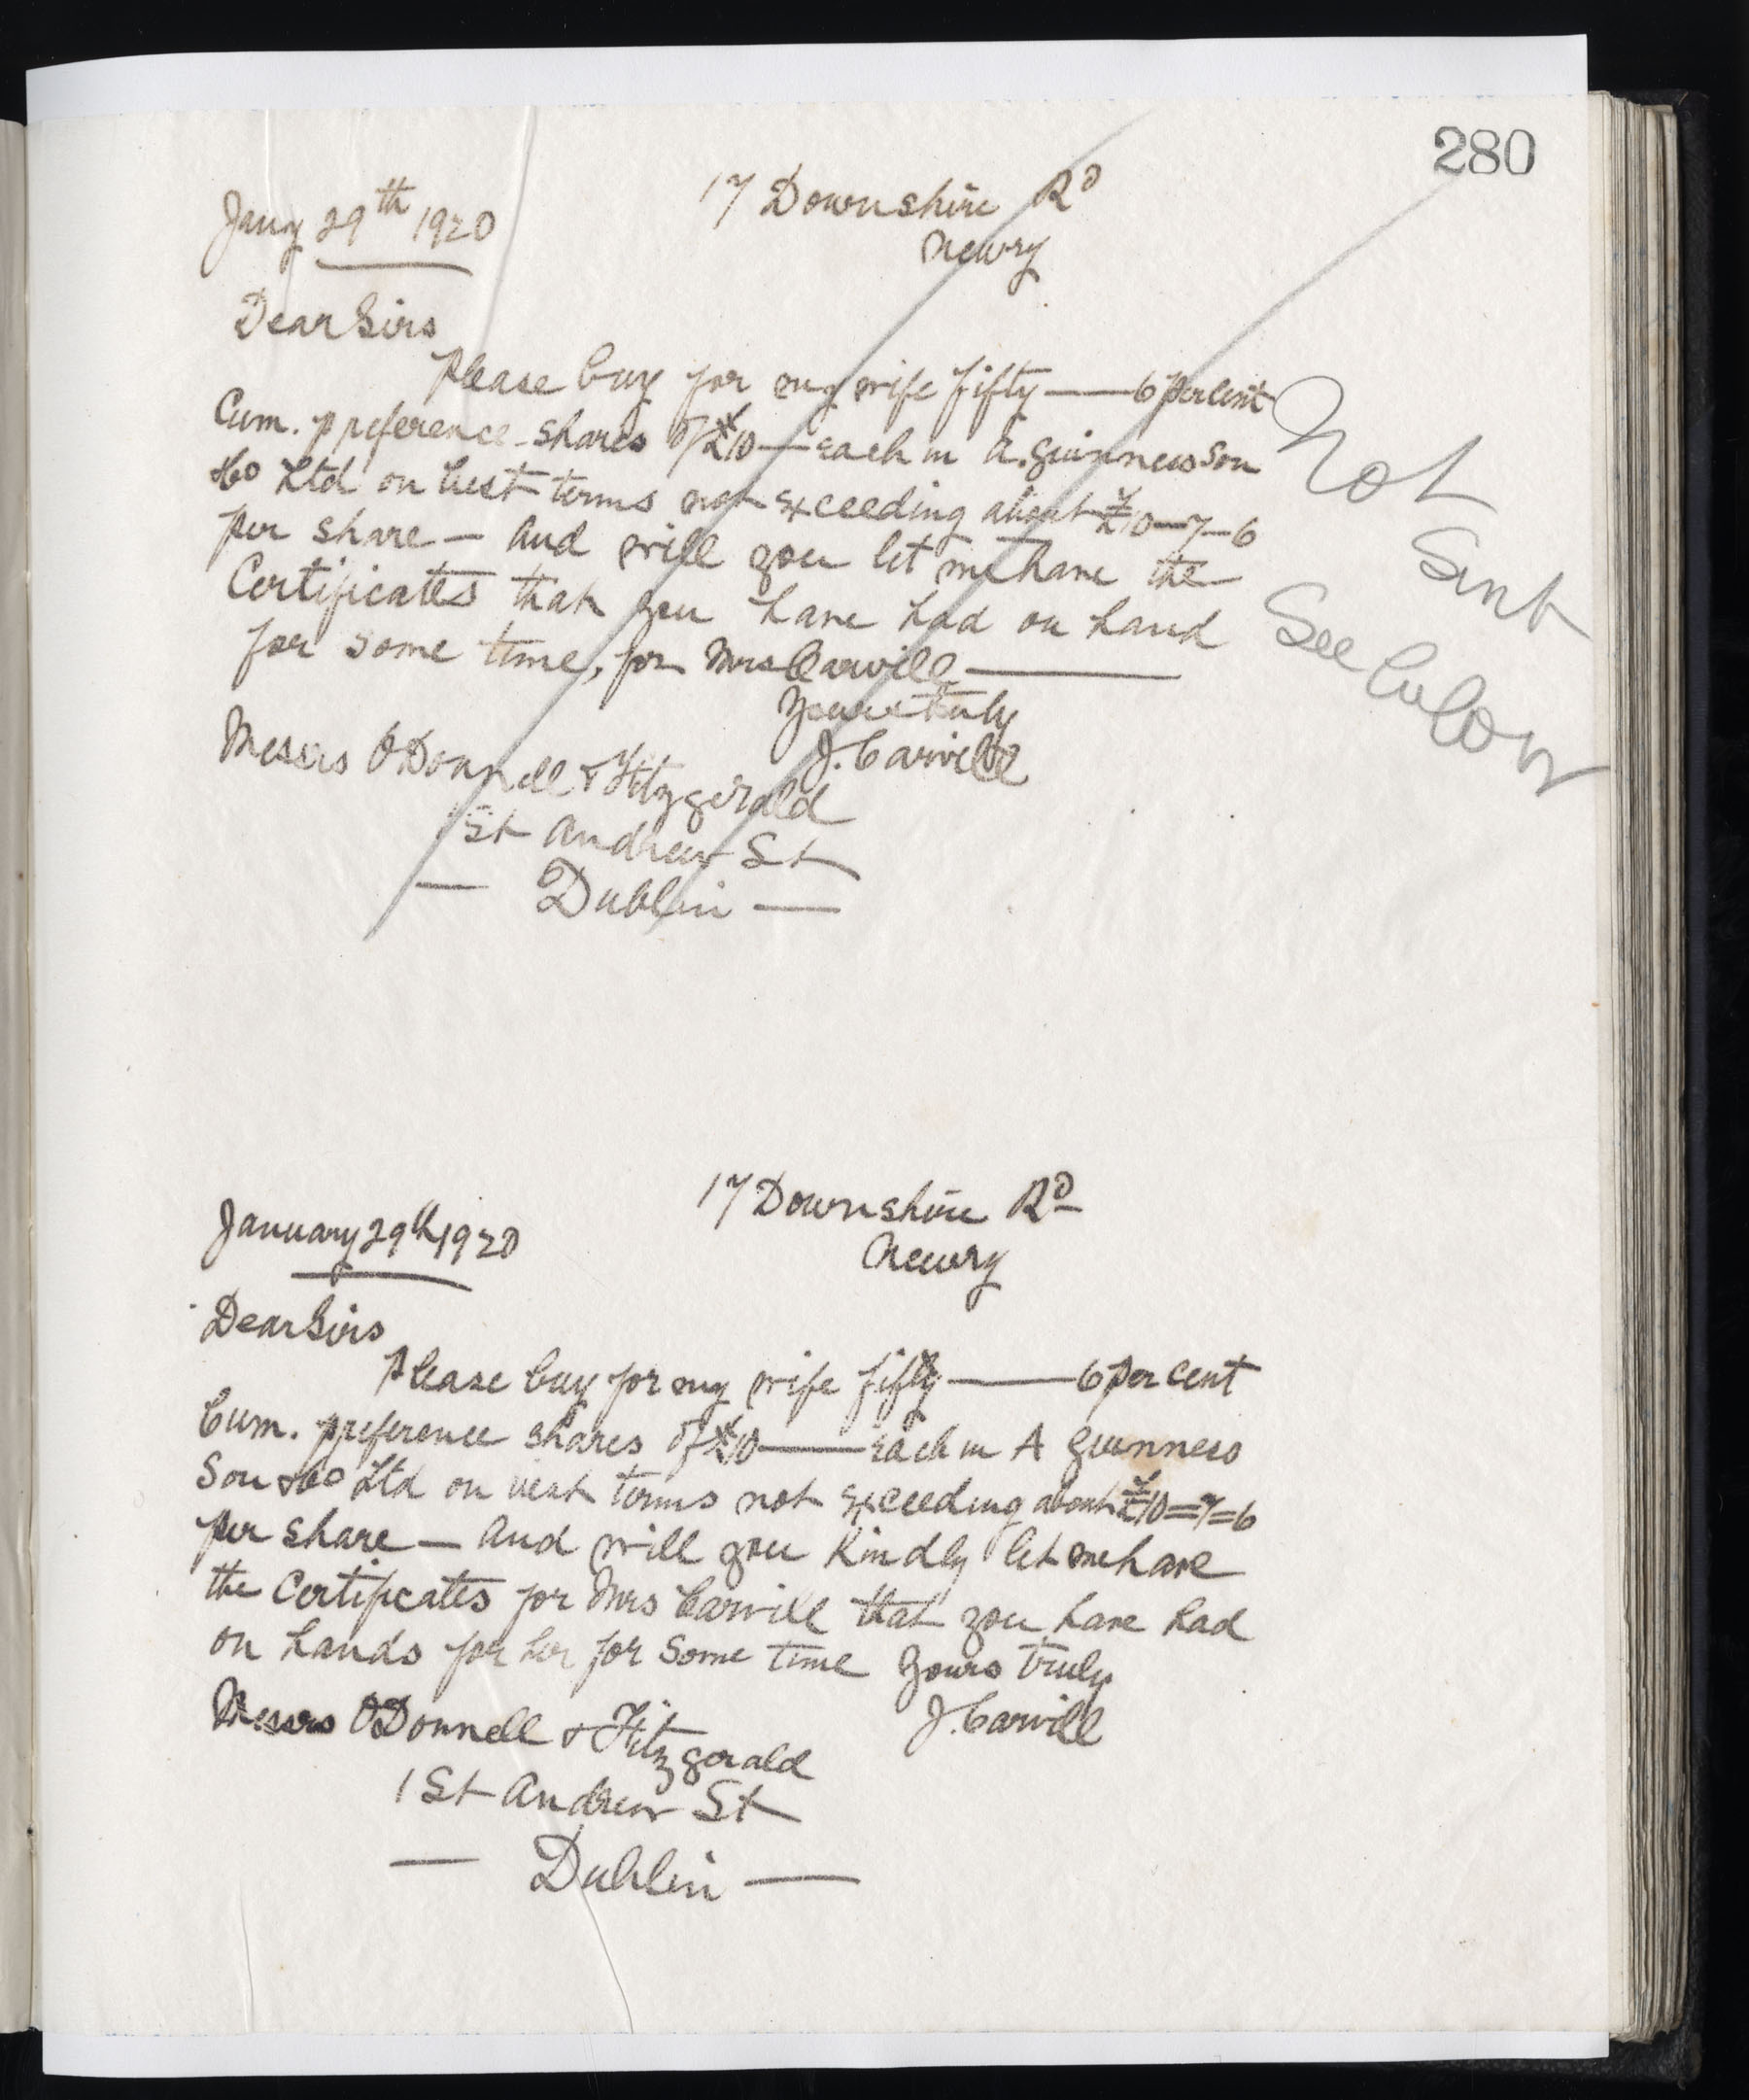 280
17 Downshire Rd
Newry
Jany 29th 1920
Dear Sirs
Please buy for my wife fifty — 6 per cent
Cum. preference shares of £10 — each in A. Guinness Son
& Co Ltd on best terms not exceeding about £10—7—6
per share — and will you let me have the
Certificates that you have had on hand
for some time, for Mrs Carvill —
Yours truly
J. Carvill
Messrs O'Donnell & Fitzgerald
1 St Andrew St
— Dublin —
Not
Sent
See below
17 Downshire Rd
Newry
January 29th 1920
Dear Sirs
Please buy for my wife fifty — 6 per cent
Cum. preference shares of £10 — each in A Guinness
Son & Co Ltd on best terms not exceeding about £10=7=6
per share — and will you kindly let me have
the Certificates for Mrs Carvill that you have had
on hands for her for some time Yours truly
J. Carvill
Messrs O'Donnell & Fitzgerald
1 St Andrew St
— Dublin —